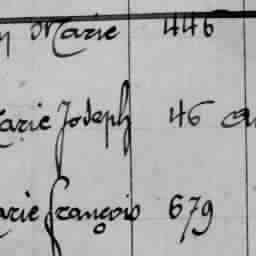 Marie 446
Marie Joseph 46
Marie François 679